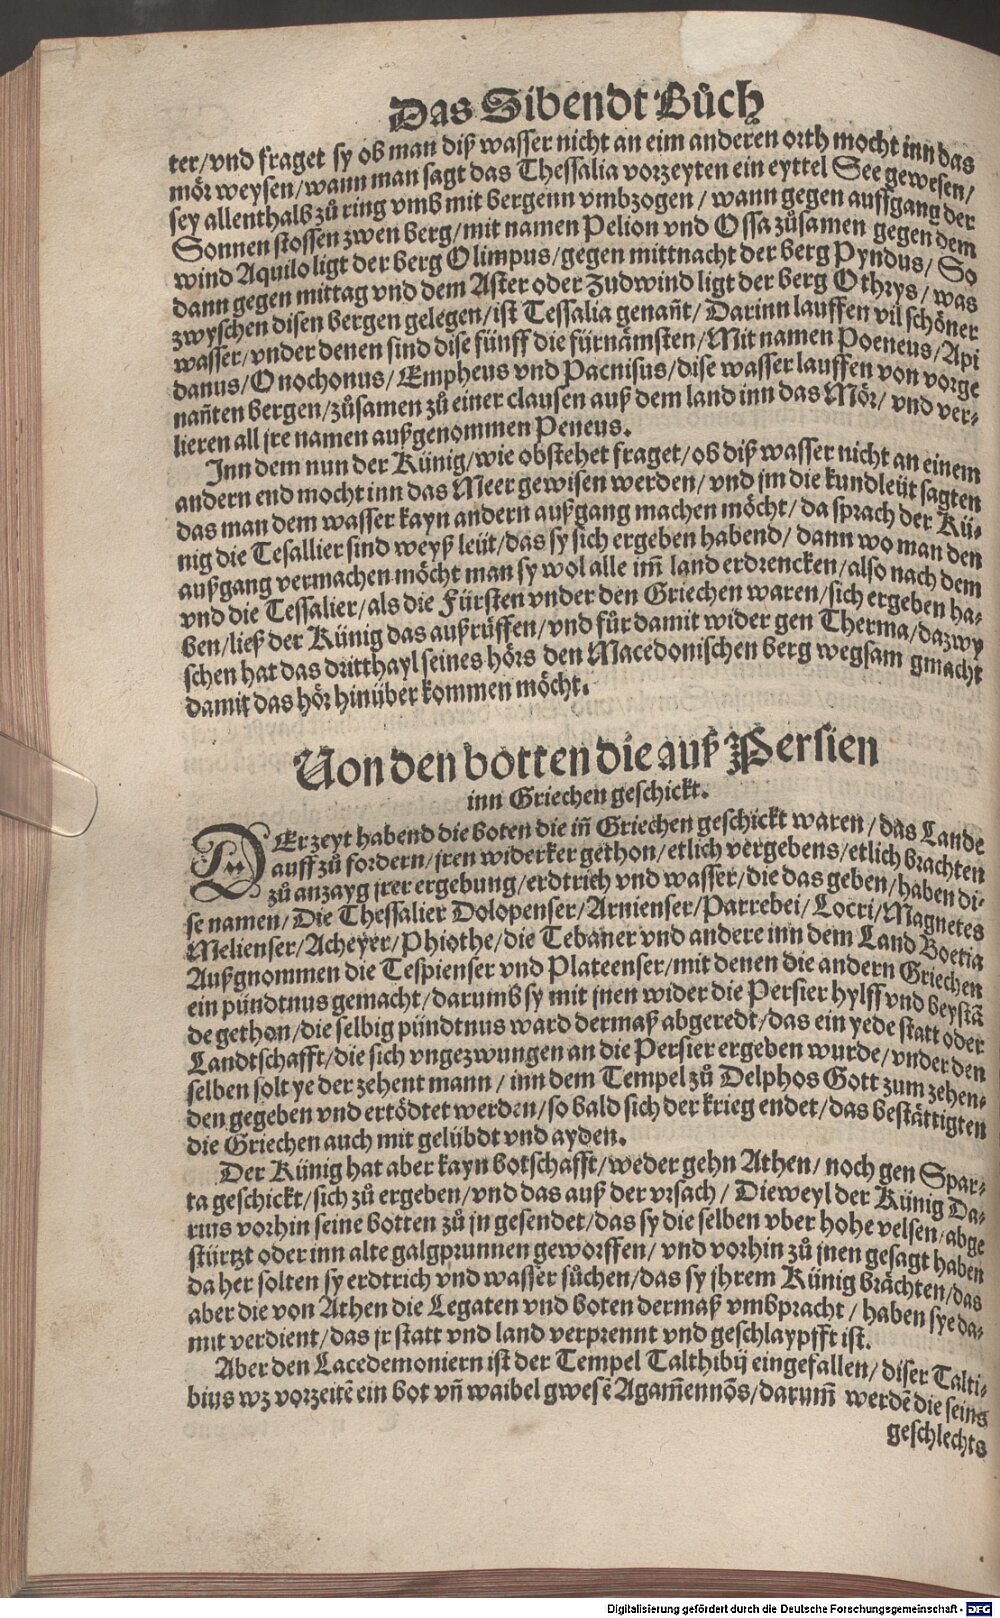 Das Sibendt Bůch
ter/vnd fraget sy ob man diß wasser nicht an eim anderen orth mocht inn das
mör weysen/wann man sagt das Thessalia vorzeyten ein eyttel See gewesen/
sey allenthalb zů ring vmb mit bergenn vmbzogen/wann gegen auffgang der
Sonnen stossen zwen berg/mit namen Pelion vnd Ossa zůsamen gegen dem
wind Aquilo ligt der berg Olimpus/gegen mittnacht der berg Pyndus/So
dann gegen mittag vnd dem Aster oder Zudwind ligt der berg Othrys/was
zwyschen disen bergen gelegen/ist Tessalia genañt/Darinn lauffen vil schöner
wasser/vnder denen sind dise fünff die fürnämsten/Mit namen Poeneus/Api
danus/Onochonus/Empheus vnd Pacnisus/dise wasser lauffen von vorge
nañten bergen/zůsamen zů einer clausen auß dem land inn das Mör/vnd ver-
lieren all jre namen außgenommen Peneus.
Inn dem nun der Künig/wie obstehet fraget/ob diß wasser nicht an einem
andern end mocht inn das Meer gewisen werden/vnd jm die kundleüt sagten
das man dem wasser kayn andern außgang machen möcht/da sprach der Kü-
nig die Tesallier sind weyß leüt/das sy sich ergeben habend/dann wo man den
außgang vermachen möcht man sy wol alle im̃ land erdrencken/also nach dem
vnd die Tessalier/als die Fürsten vnder den Griechen waren/sich ergeben ha-
ben/ließ der Künig das außrüffen/vnd für damit wider gen Therma/dazwy
schen hat das dritthayl seines hörs den Macedonischen berg wegsam gmacht
damit das hör hinüber kommen möcht.
Von den botten die auß Persien
inn Griechen geschickt.
DEr zeyt habend die boten die iñ Griechen geschickt waren/das Lande
auff zů fordern/jren widerker gethon/etlich vergebens/etlich brachten
zů anzayg jrer ergebung/erdtrich vnd wasser/die das geben/haben di-
se namen/Die Thessalier Dolopenser/Arnienser/Parrebei/Locri/Magnetes
Melienser/Acheyer/Phiothe/die Tebaner vnd andere inn dem Land Boetia
Außgnommen die Tespienser vnd Plateenser/mit denen die andern Griechen
ein pündtnus gemacht/darumb sy mit jnen wider die Persier hylff vnd beystã
de gethon/die selbig pündtnus ward dermaß abgeredt/das ein yede statt oder
Landtschafft/die sich vngezwungen an die Persier ergeben wurde/vnder den
selben solt ye der zehent mann/inn dem Tempel zů Delphos Gott zum zehen-
den gegeben vnd ertödtet werden/so bald sich der krieg endet/das bestättigten
die Griechen auch mit gelübdt vnd ayden.
Der Künig hat aber kayn botschafft/weder gehn Athen/noch gen Spar-
ta geschickt/sich zů ergeben/vnd das auß der vrsach/Dieweyl der Künig Da-
rius vorhin seine botten zů jn gesendet/das sy die selben vber hohe velsen/abge
stürtzt oder inn alte galgprunnen geworffen/vnd vorhin zů jnen gesagt haben
da her solten sy erdtrich vnd wasser sůchen/das sy jhrem Künig brächten/das
aber die von Athen die Legaten vnd boten dermaß vmbpracht/haben sye da-
mit verdient/das jr statt vnd land verprennt vnd geschlaypfft ist.
Aber den Lacedemoniern ist der Tempel Talthibij eingefallen/diser Talti-
bius wz vorzeitẽ ein bot vñ waibel gwesẽ Agam̃ennõs/darum̃ werdẽ die seins
geschlechts
Digitalisierung gefördert durch die Deutsche Forschungsgemeinschaft - DFG